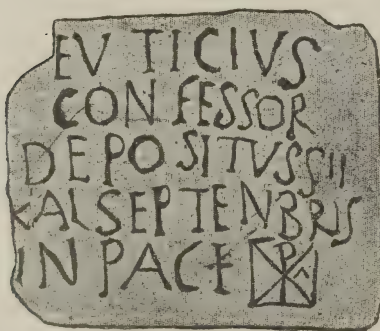 EVTICIVS
CONFESSOR
DEPOSITVSSII
KALSEPTENBRIS
IN PACE ☧